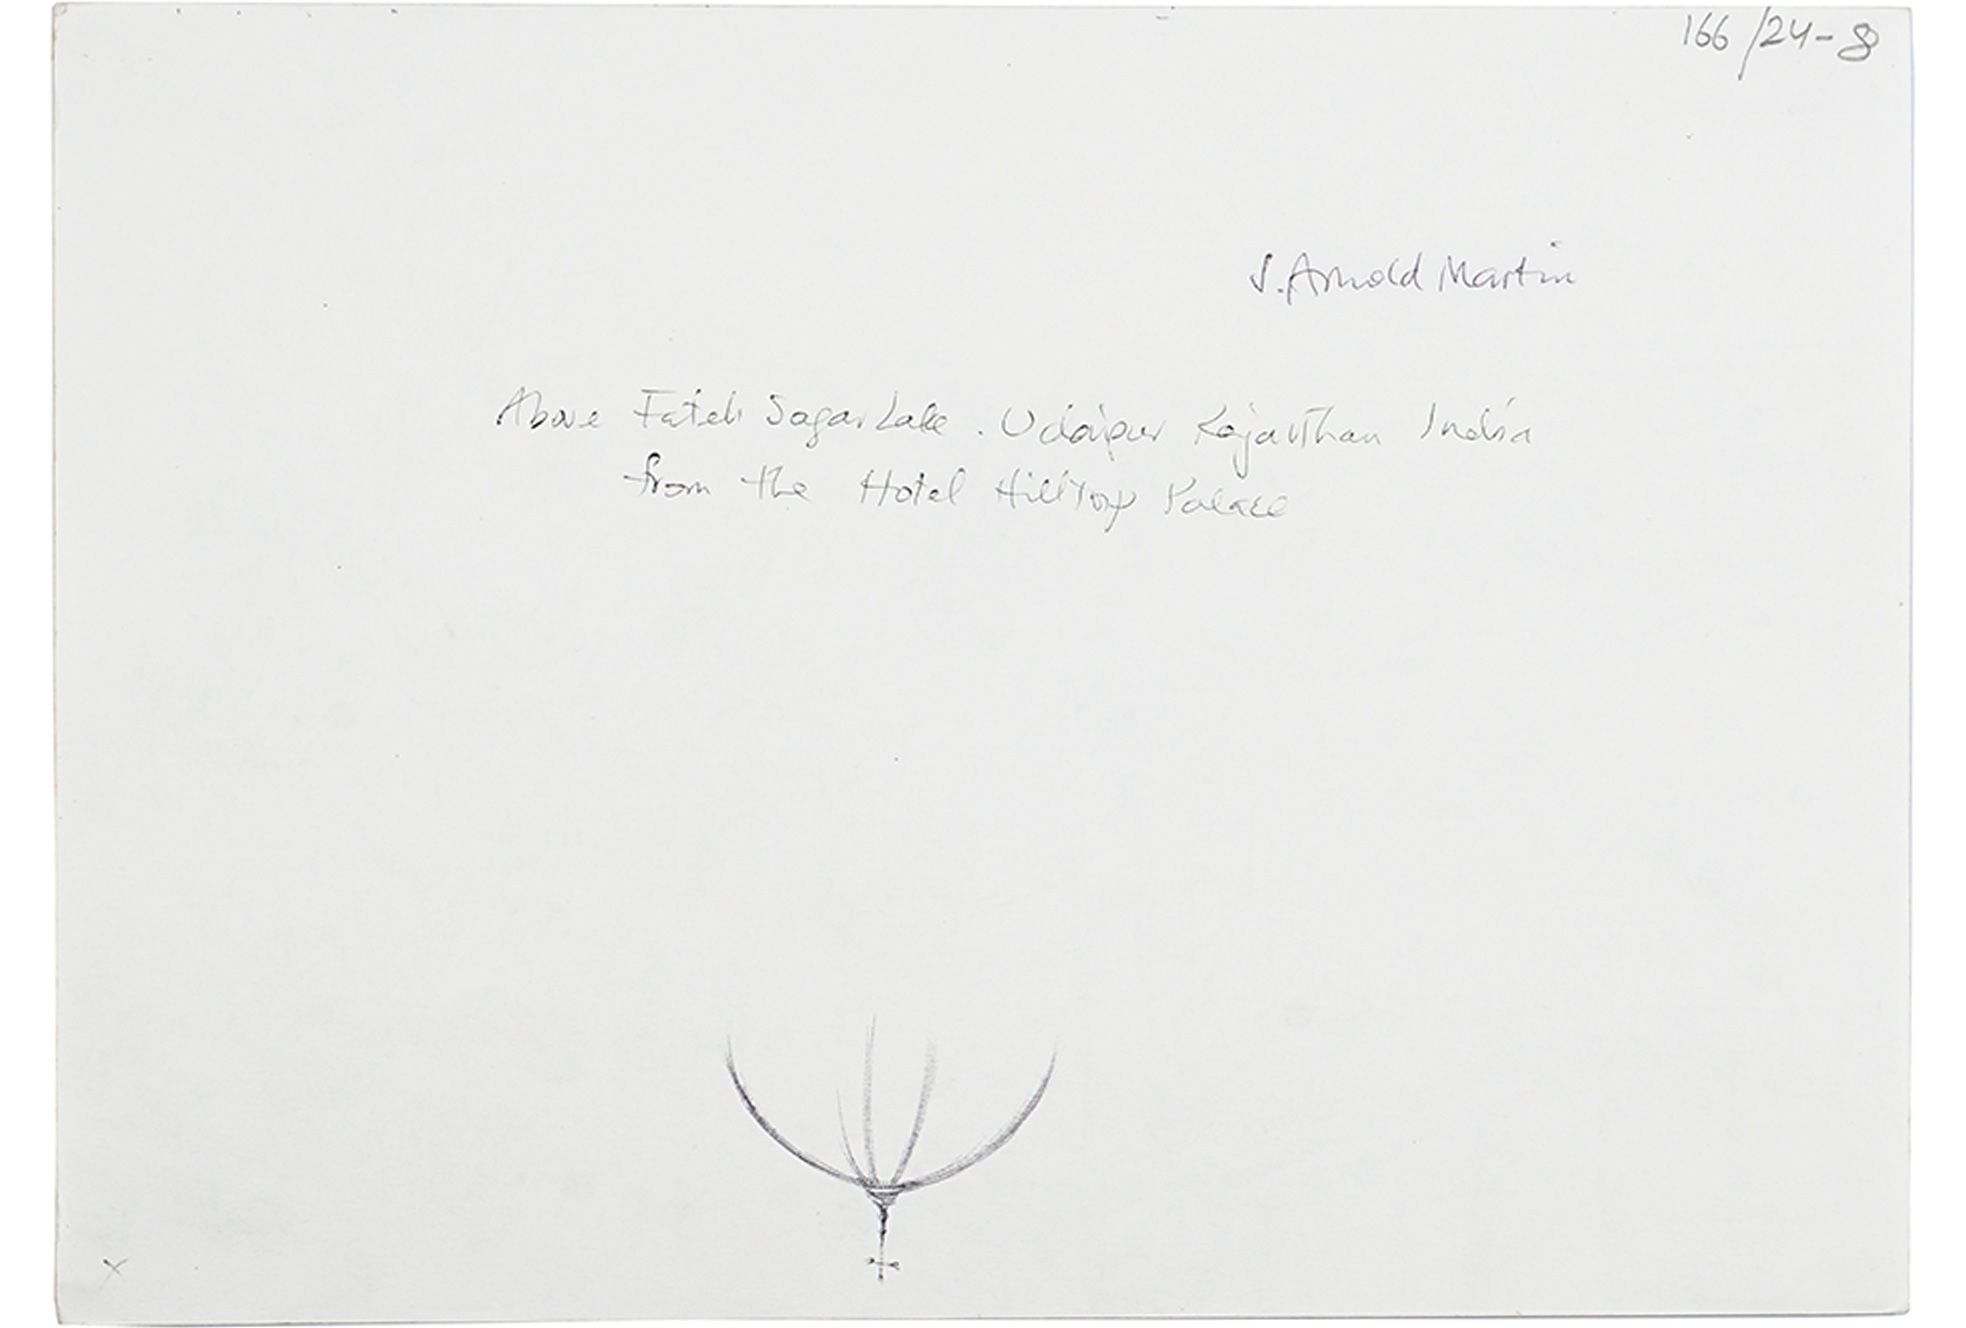 166/24-8
J. Arnold Martin
Above Fateh Sagar Lake. Udaipur Rajasthan India
from the Hotel Hilltop Palace
x